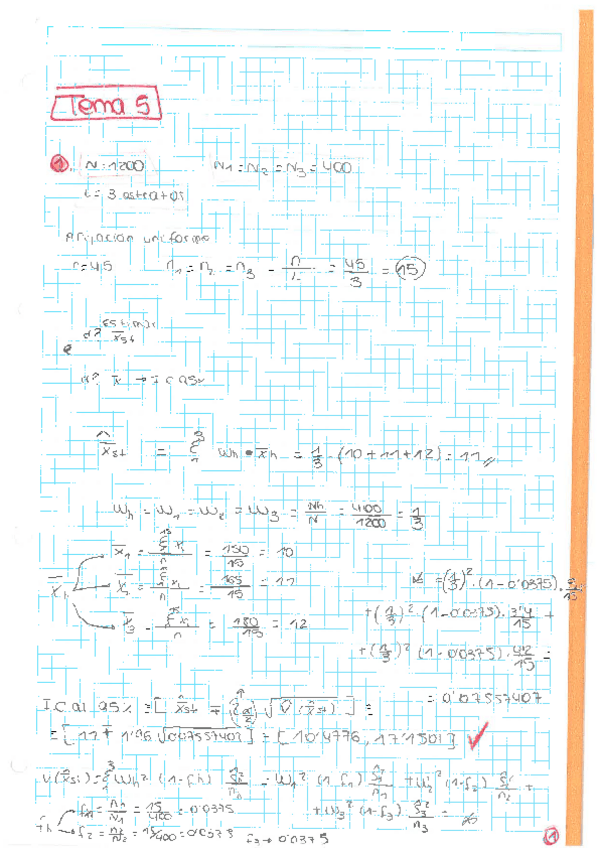 Tema 5
1. N = 1200 N1 = N2 = N3 = 400
L = 3 estratos
Afijación uniforme
n = 45 n1 = n2 = n3 = n/L = 45/3 = 15
x̄st
x̄ → I.C 95%
x̂̄st = Σ wh · x̄h = 1/3 · (10+11+12) = 11
Wh = W1 = W2 = W3 = Nh/N = 400/1200 = 1/3
x̄1 = = 150/15 = 10
x̄h x̄2 = = 165/15 = 11 * = (1/3)² · (1-0'0375) ·
x̄3 = = 180/15 = 12 + (1/3)² · (1-0'0375) · /15 +
+ (1/3)² (1-0'0375) · 4'2/15 =
= 0'07557407
I.C al 95% = [ x̂̄st ∓ √V̂(x̄st) ] =
= [ 11 ∓ 1'96 √0'07557407 ] = [ 10'4776 , 11'1501 ] ✓
V(x̄st) = Σ Wh² (1-fh) Ŝh²/nh = W1² (1-f1) Ŝ1²/n1 + W2² (1-f2) /n2 +
fh f1 = n1/N1 = 15/400 = 0'0375 + W3² (1-f3) Ŝ3²/n3 = *
f2 = n2/N2 = 15/400 = 0'0375 f3 → 0'0375
1